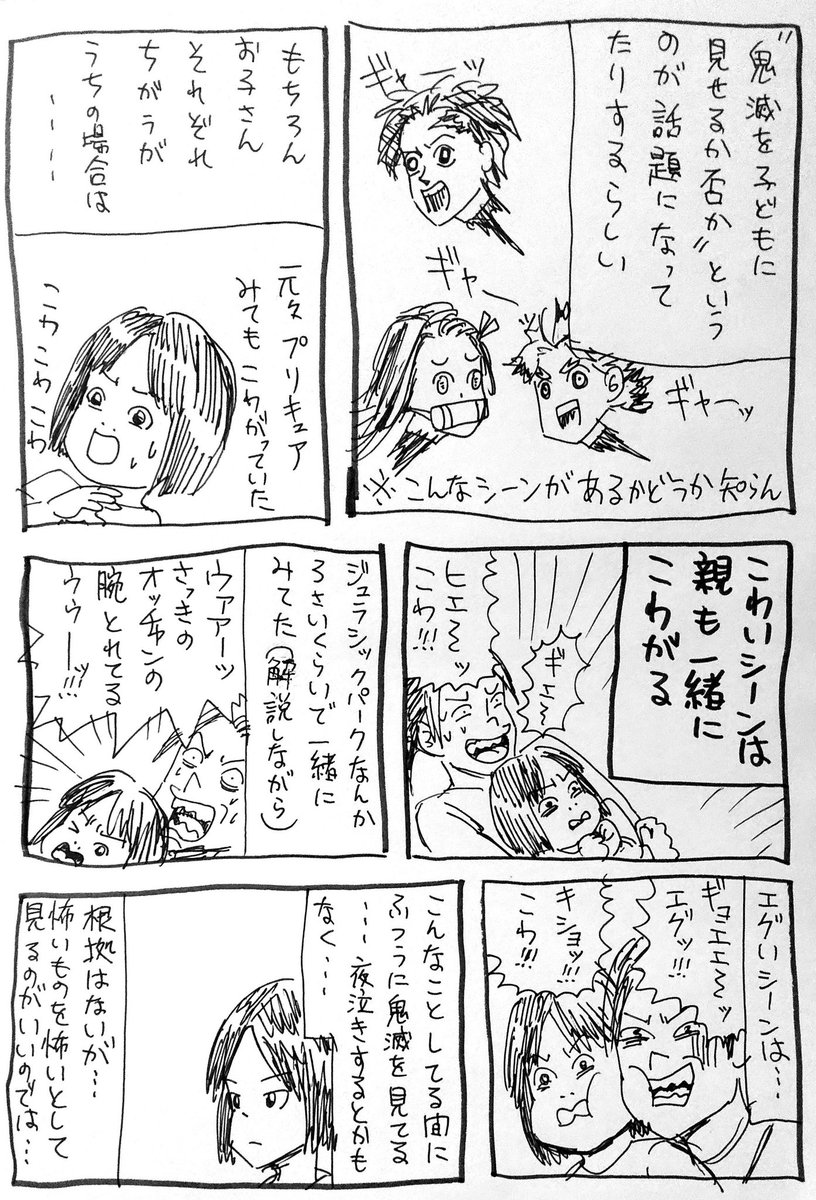 “鬼滅を子どもに
見せるか否か”という
のが話題になって
たりするらしい
ギャーーッ
ギャー
ギャーッ
※こんなシーンがあるかどうか知らん
もちろん
お子さん
それぞれ
ちがうが
うちの場合は
‥‥‥
元々プリキュア
みてもこわがっていた
こわこわこわ
こわいシーンは
親も一緒に
こわがる
ギェ〜
ヒエ〜ッ
こわ!!!
ジュラシックパークなんか
ろさいくらいで一緒に
みてた(解説しながら)
ウァアーッ
さっきの
オッチャンの
腕とれてる
ウゥーッ!!!
エグいシーンは…
ギョエエ〜ッ
エグッ!!!
キショッ!!
こわ!!!
こんなことしてる間に
ふつうに鬼滅を見てる
‥‥夜泣きするとかも
なく‥‥
根拠はないが…
怖いものを怖いとして
見るのがいいのでは…